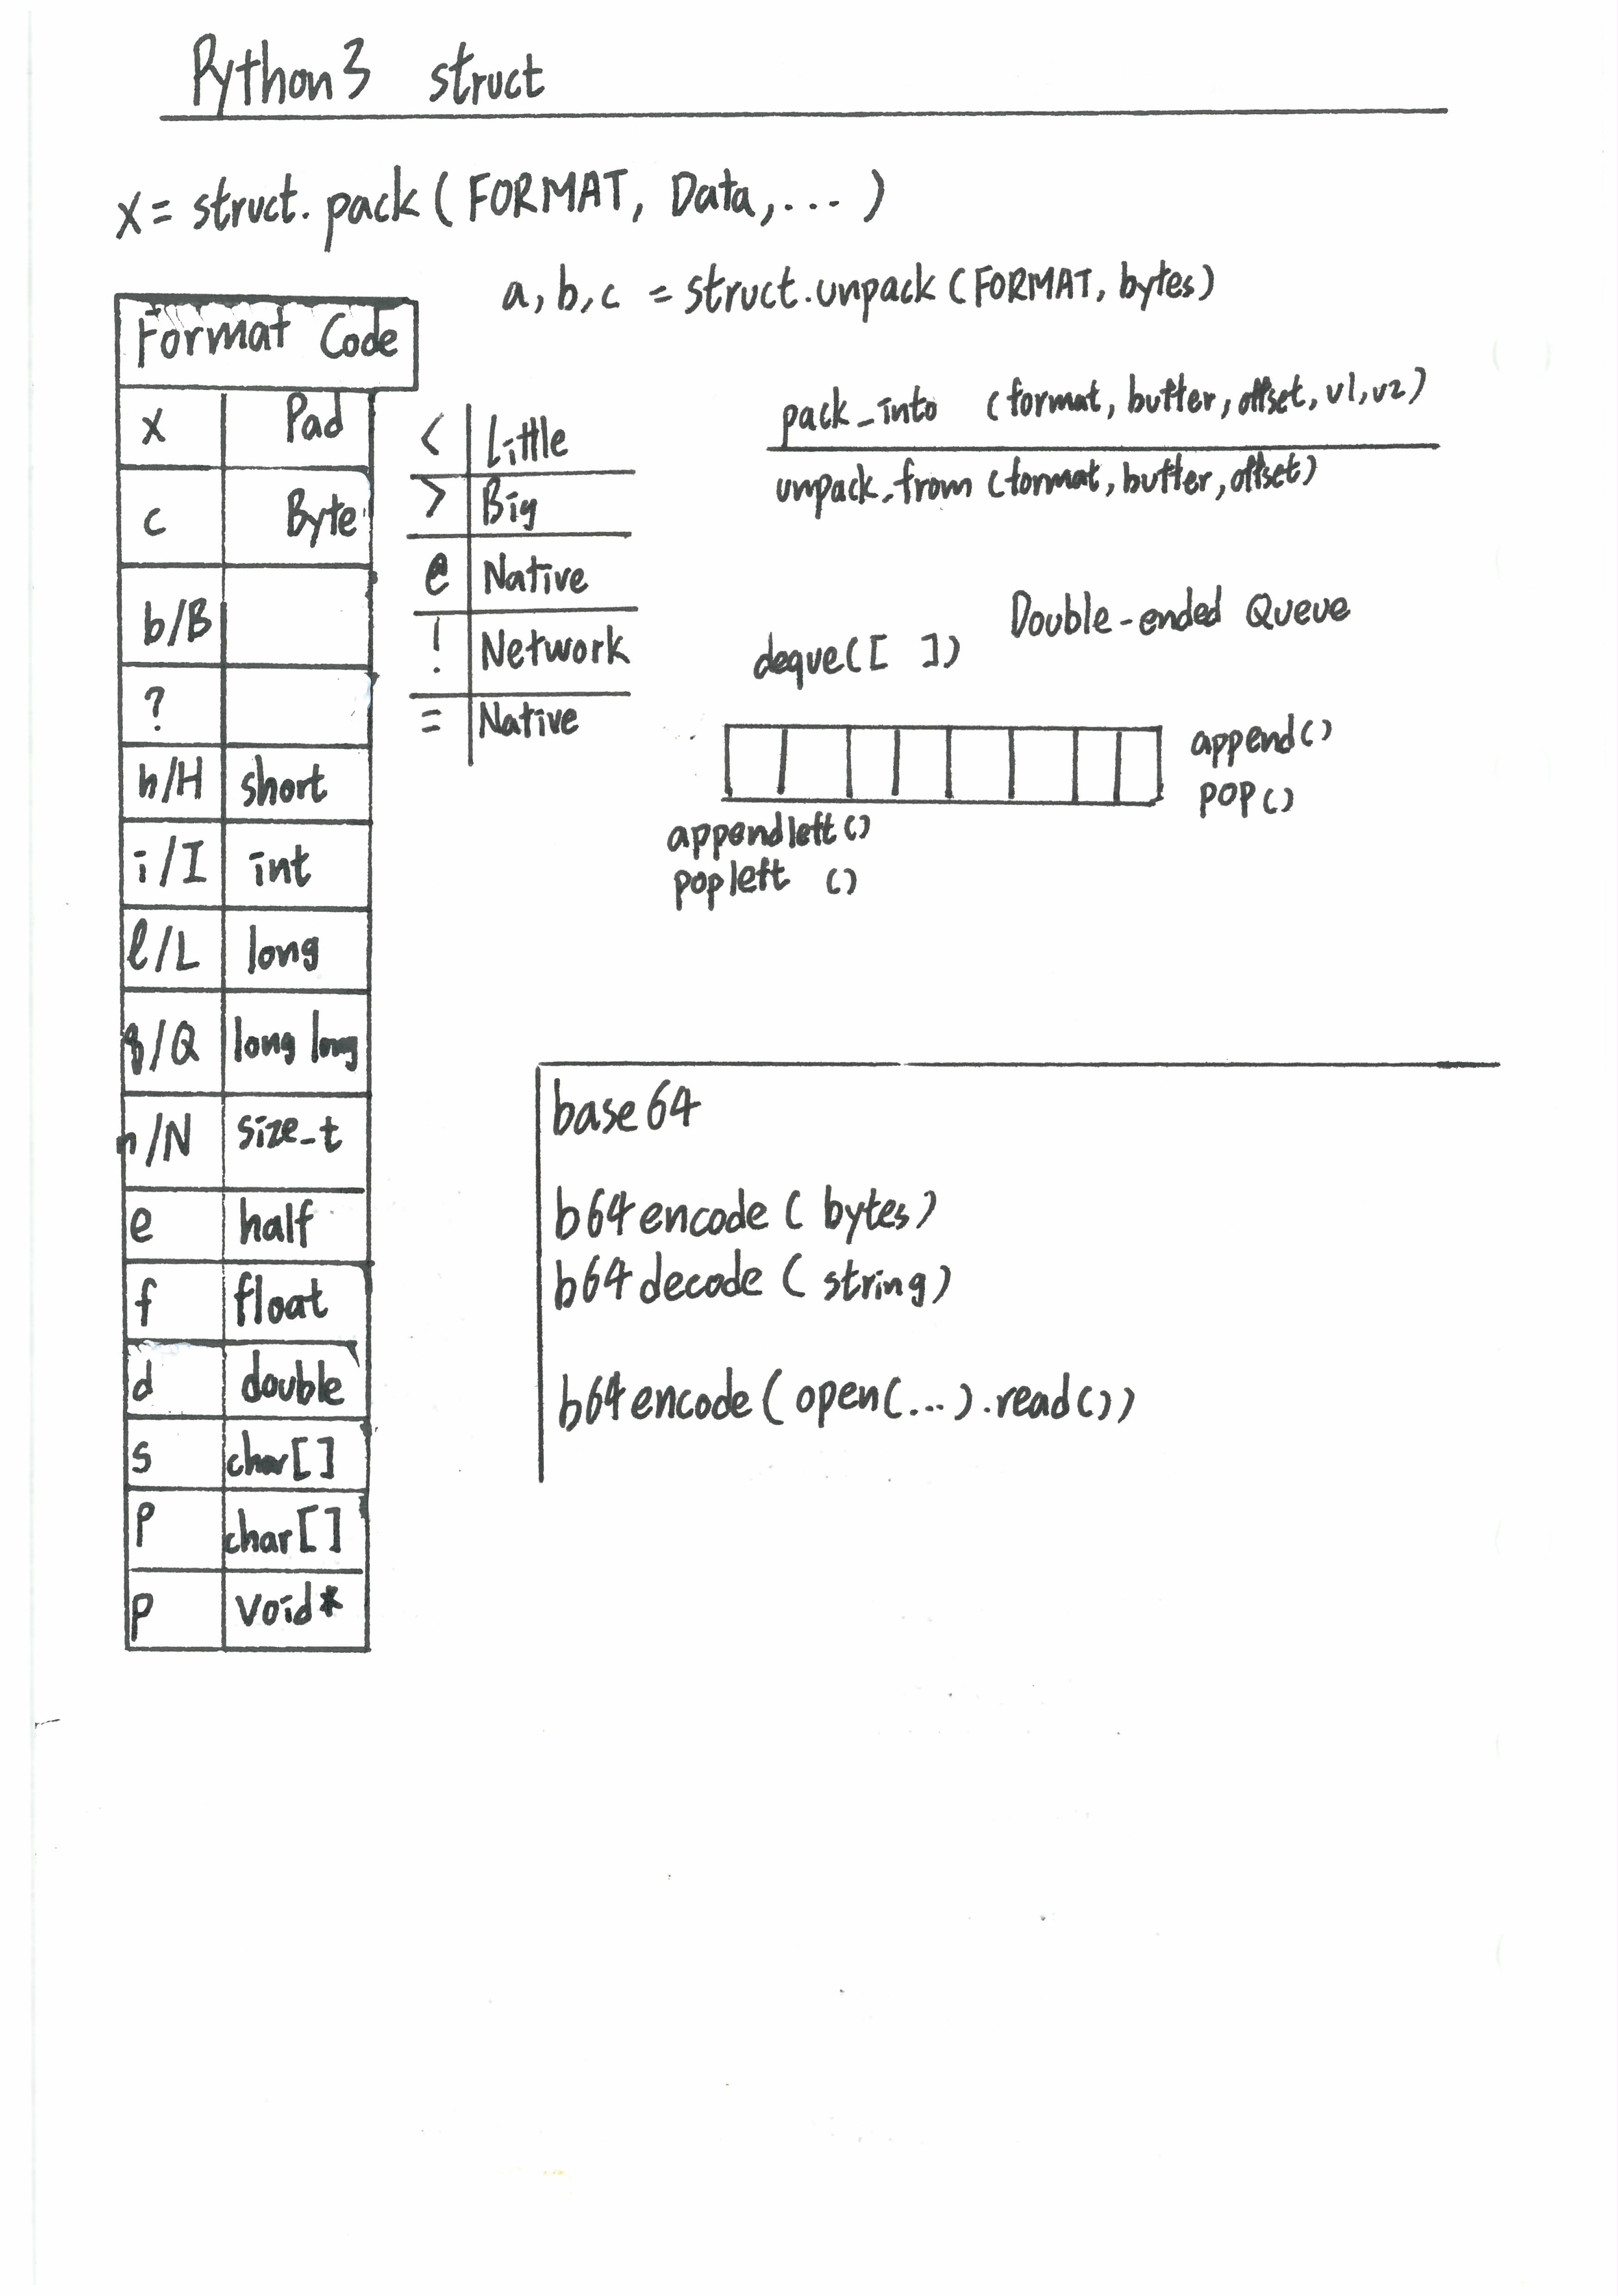 Python3 struct
x = struct.pack (FORMAT, Data,...)
a, b, c = struct.unpack (FORMAT, bytes)
Format Code
x Pad
c Byte
b/B
?
h/H short
i/I int
l/L long
q/Q long long
n/N size_t
e half
f float
d double
s char[]
p char[]
p void*
< Little
> Big
@ Native
! Network
= Native
pack_into (format, buffer, offset, v1, v2)
unpack_from (format, buffer, offset)
deque([ ]) Double-ended Queue
append()
pop()
appendleft()
popleft ()
base64
b64encode (bytes)
b64decode (string)
b64encode (open(...).read())